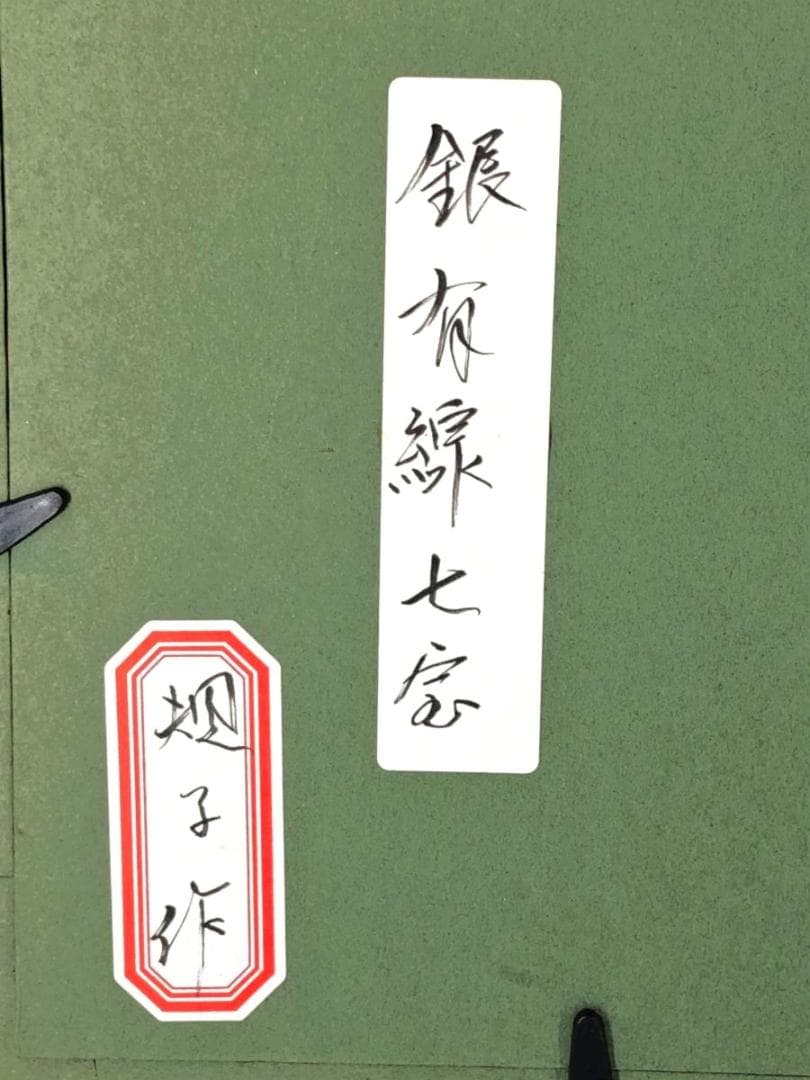 銀有線七宝
規子作